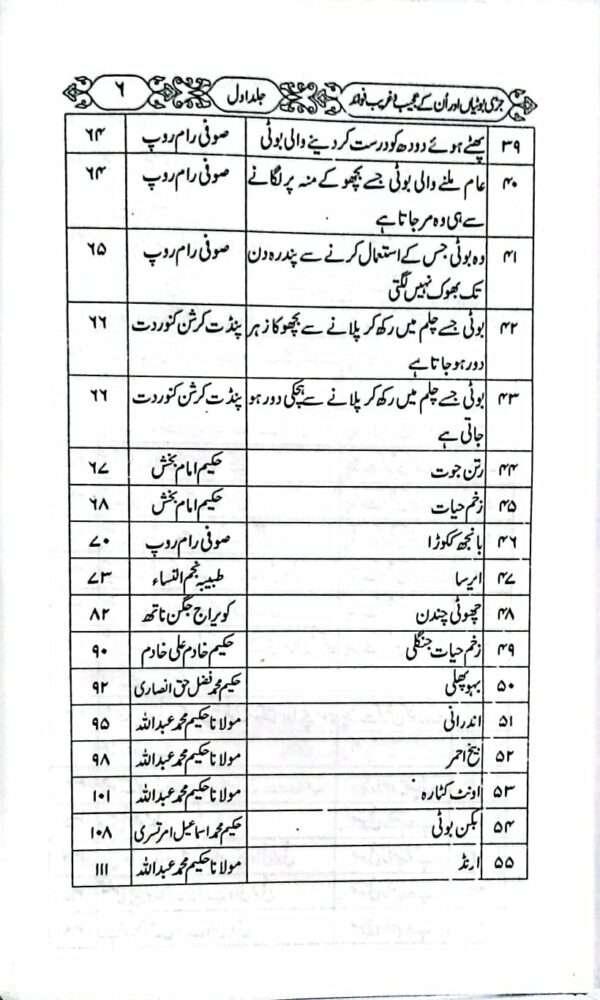 جڑی بوٹیاں اور ان کے عجیب و غریب فوائد جلد اول ۶
۳۹ پھٹے ہوئے دودھ کو درست کر دینے والی بوٹی صوفی رام روپ ۶۴
۴۰ عام ملنے والی بوٹی جسے بچھو کے منہ پر لگانے صوفی رام روپ ۶۴
سے ہی وہ مر جاتا ہے
۴۱ وہ بوٹی جس کے استعمال کرنے سے پندرہ دن صوفی رام روپ ۶۵
تک بھوک نہیں لگتی
۴۲ بوٹی جسے چلم میں رکھ کر پلانے سے بچھو کا زہر پنڈت کرشن کنور دت ۶۶
دور ہو جاتا ہے
۴۳ بوٹی جسے چلم میں رکھ کر پلانے سے ہچکی دور ہو پنڈت کرشن کنور دت ۶۶
جاتی ہے
۴۴ رتن جوت حکیم امام بخش ۶۷
۴۵ زخم حیات حکیم امام بخش ۶۸
۴۶ بانجھ ککوڑا صوفی رام روپ ۷۰
۴۷ ایرسا طبیبہ نجم النساء ۷۳
۴۸ چھوٹی چندن کویراج جگن ناتھ ۸۲
۴۹ زخم حیات جنگلی حکیم خادم علی خادم ۹۰
۵۰ بہوپھلی حکیم محمد فضل حق انصاری ۹۲
۵۱ اندرانی مولانا حکیم محمد عبداللہ ۹۵
۵۲ بیخ احمر مولانا حکیم محمد عبداللہ ۹۸
۵۳ اونٹ کٹارہ مولانا حکیم محمد عبداللہ ۱۰۱
۵۴ بکن بوٹی حکیم محمد اسماعیل امرتسری ۱۰۸
۵۵ ارنڈ مولانا حکیم محمد عبداللہ ۱۱۱